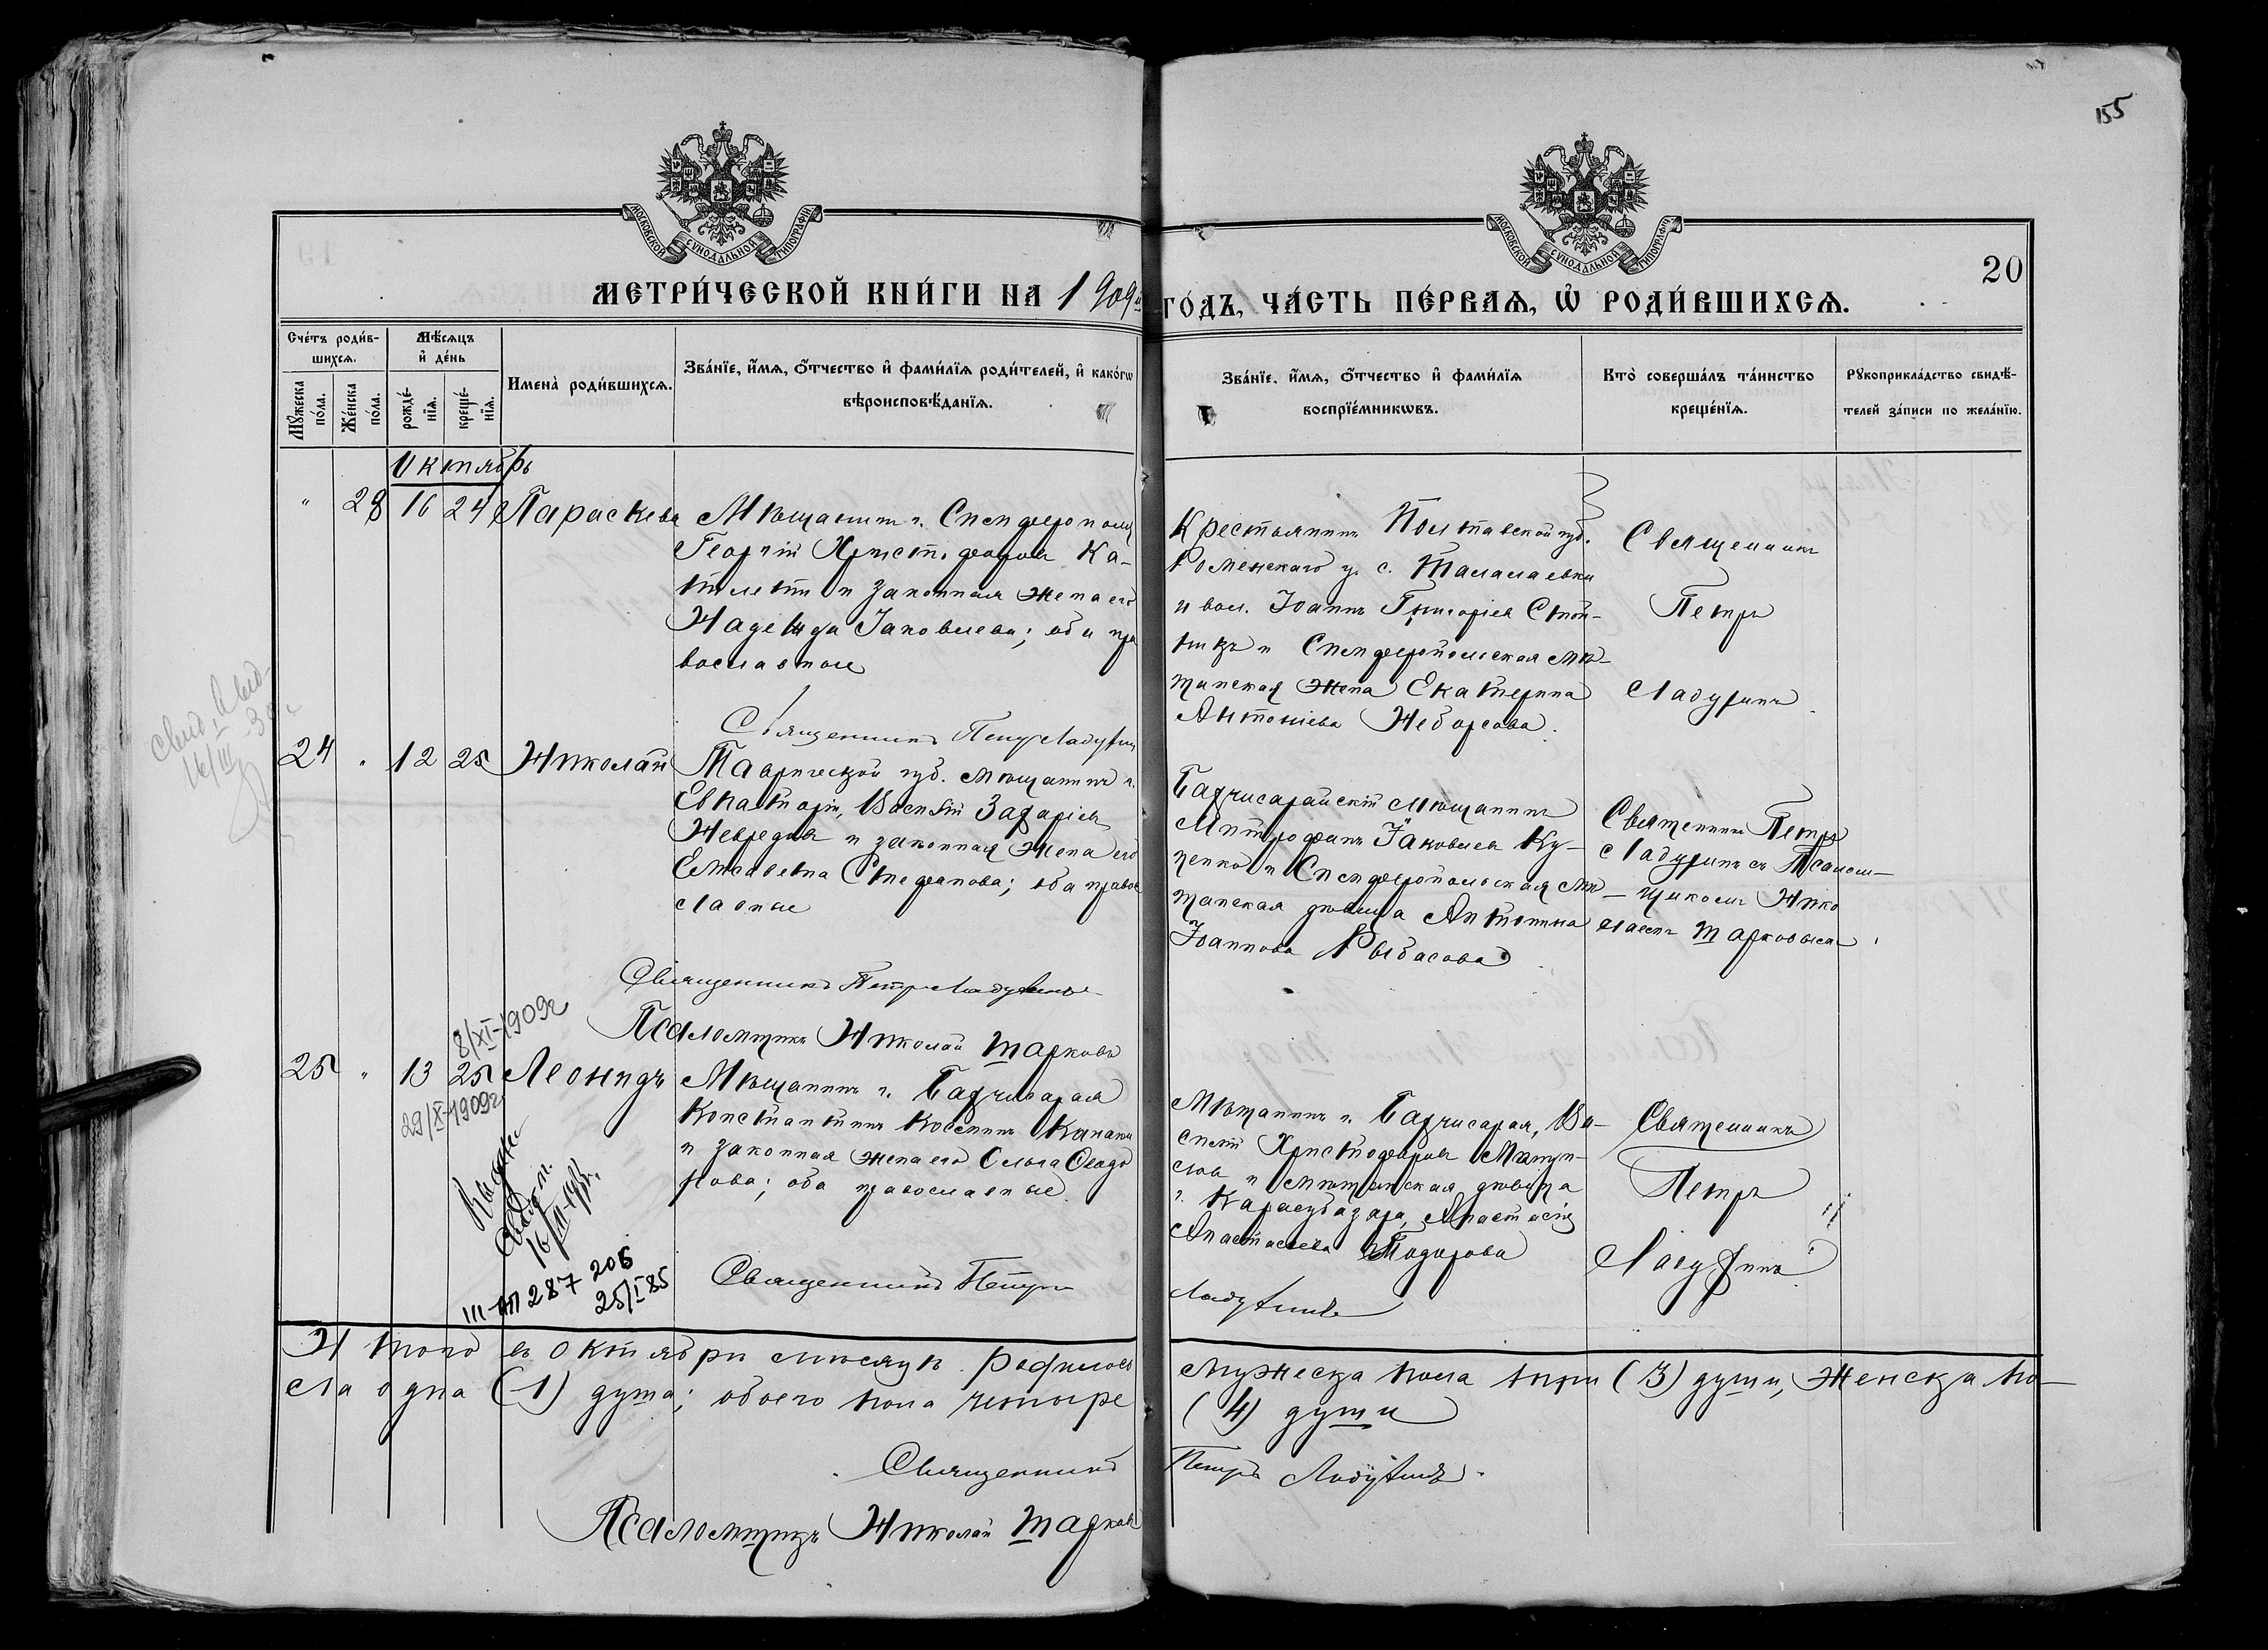 155
МОСКОВСКОЙ СѴНОДАЛЬНОЙ ТИПОГРАФІИ
МОСКОВСКОЙ СѴНОДАЛЬНОЙ ТИПОГРАФІИ
20
МЕТРИ́ЧЕСКОЙ КНИ́ГИ НА 1909й
ГО́ДЪ, ЧА́СТЬ ПЕ́РВАѦ, Ѡ҆ РОДИ́ВШИХСѦ.
Сче́тъ роди́в-
шихсѧ.
Мѣ́сѧцъ
и҆ де́нь
Мꙋ́жеска
по́ла.
Же́нска
по́ла.
рожде́-
нїѧ.
креще́-
нїѧ.
Имена̀ роди́вшихсѧ.
Зва́нїе, и҆́мѧ, ѻ҆́тчество и҆ фами́лїѧ роди́телей, и҆ како́гѡ
вѣроисповѣ́данїѧ.
Зва́нїе, и҆́мѧ, ѻ҆́тчество и҆ фами́лїѧ
воспрїе́мникѡвъ.
Кто̀ соверша́лъ та́инство
креще́нїѧ.
Рꙋкоприкла́дство свидѣ́-
телей за́писи по жела́нїю.
Октябрь
" 28 16 24 Параскева
Мѣщанинъ г. Симферополя
Георгій Христофоровъ Ка-
и законная жена его
Надежда Іаковлева; оба пра
вославные
Священникъ Петръ Ладугинъ
Крестьянинъ Полтавской губ.
Роменскаго у. с. Талалаевки
и вол. Іоаннъ Григоріев
и Симферопольская мѣ-
щанская жена Екатерина
Антоніева Неборсова.
Священникъ
Петръ
Ладугинъ
24 " 12 25 Николай
Таврической губ. мѣщанинъ г.
Евпаторіи, Василій Захаріев
и законная жена его
Елисавета Стефанова; оба право
славные
Священникъ Петръ Ладугинъ
Псаломщикъ Николай Тарковъ
Бахчисарайскій мѣщанинъ
Митрофанъ Іаковлев Ку-
ценко и Симферопольская мѣ-
щанская дѣвица Антонина
Іоаннова Рыбасова
Священникъ Петръ
Ладугинъ съ Псалом-
щикомъ Нико
лаемъ Тарковым
8/XI-1909г
25 " 13 25 Леонидъ
29/X-1909г
Мѣщанинъ г. Бахчисарая
Константинъ
и законная жена его Ольга Ѳеодо
рова; оба православные.
Священникъ Петръ
Ладугинъ
Мѣщанинъ г. Бахчисарая, Ва-
силій Христофоровъ
и мѣщанская дѣвица
г. Карасубазара, Анастасія
Анастасіева Тодорова
Священникъ
Петръ
Ладугинъ
III-АП 287 206
25/I 85
Итого въ Октябрѣ мѣсяцѣ родилось мужеска пола три (3) души, Женска по-
ла одна (1) душа; обоего пола четыре (4) души
Священникъ Петръ Ладугинъ.
Псаломщикъ Николай Тарковъ